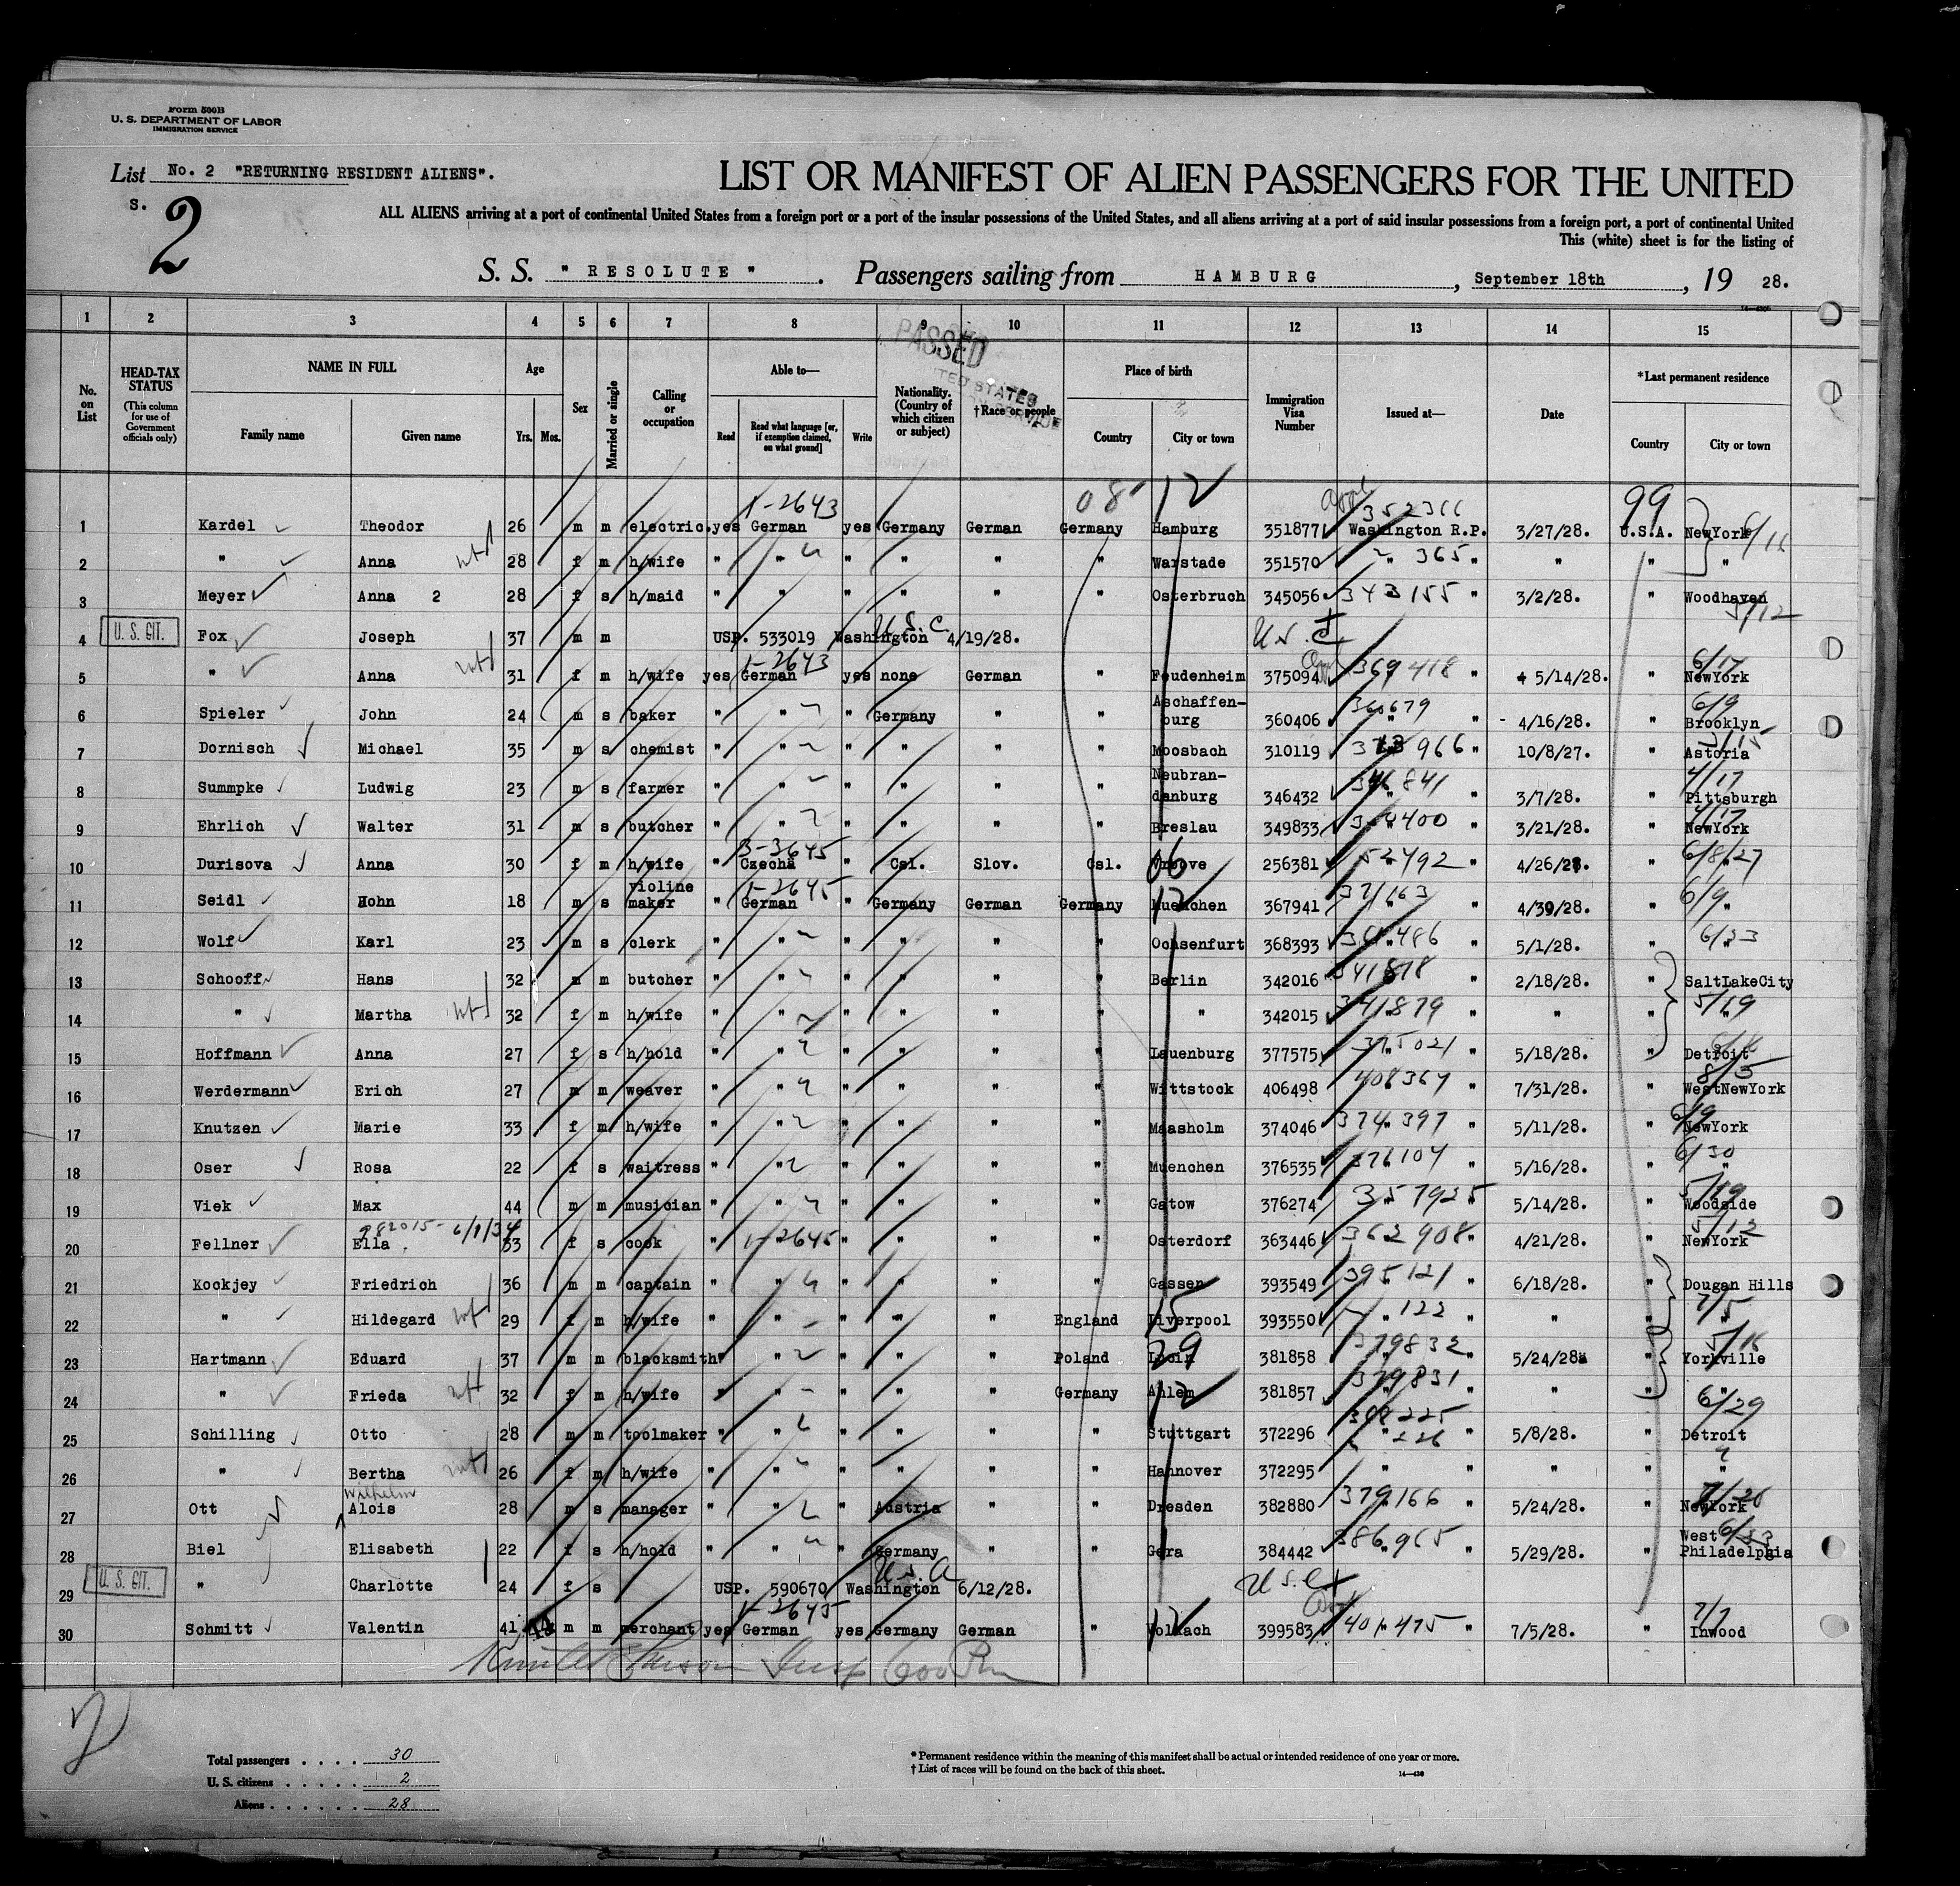 Form 500B
U. S. DEPARTMENT OF LABOR
IMMIGRATION SERVICE
List No. 2 "RETURNING RESIDENT ALIENS".
S.
2
LIST OR MANIFEST OF ALIEN PASSENGERS FOR THE UNITED
ALL ALIENS arriving at a port of continental United States from a foreign port or a port of the insular possessions of the United States, and all aliens arriving at a port of said insular possessions from a foreign port, a port of continental United
This (white) sheet is for the listing of
S. S. " RESOLUTE " . Passengers sailing from HAMBURG , September 18th , 19 28.
1 2 3 4 5 6 7 8 9 10 11 12 13 14 15
PASSED
No. on List
HEAD-TAX STATUS (This column for use of Government officials only)
NAME IN FULL Family name Given name
Age Yrs. Mos.
Sex
Married or single
Calling or occupation
Able to— Read Read what language [or, if exemption claimed, on what ground] Write
Nationality. (Country of which citizen or subject)
† Race or people
Place of birth Country City or town
Immigration Visa Number
Issued at—
Date
*Last permanent residence Country City or town
08 12 99
1-2643 352366
1 Kardel Theodor 26 m m electric. yes German yes Germany German Germany Hamburg 351877 Washington R.P. 3/27/28. U.S.A. NewYork
2 " Anna 28 f m h/wife " " " " " " Warstade 351570 " 365 " " " "
3 Meyer Anna 2 28 f s h/maid " " " " " " Osterbruch 345056 343155 " 3/2/28. Woodhaven 5/12
4 U. S. CIT. Fox Joseph 37 m m USP. 533019 Washington 4/19/28. U.S.C.
5 " Anna 31 f m h/wife yes German 1-2643 yes none German " Feudenheim 375094 369418 " 5/14/28. " NewYork 6/17
6 Spieler John 24 m s baker " " " Germany " " Aschaffen-burg 360406 " 4/16/28. " Brooklyn 6/9
7 Dornisch Michael 35 m s chemist " " " " " " Moosbach 310119 " 10/8/27. " Astoria
8 Summpke Ludwig 23 m s farmer " " " " " " Neubran-denburg 346432 346841 3/7/28. " Pittsburgh 4/17
9 Ehrlich Walter 31 m s butcher " " " " " " Breslau 349833 " 3/21/28. " NewYork
10 Durisova Anna 30 f m h/wife " Czecha 3-3645 " Csl. Slov. Csl. 06 256381 52492 " 4/26/28. " " 6/8/27
11 Seidl Hohn 18 m s violine maker " German 1-2645 " Germany German Germany Muenchen 12 367941 371163 4/30/28. " " 6/9
12 Wolf Karl 23 m s clerk " " " " " " Ochsenfurt 368393 " 5/1/28. " " 6/23
13 Schooff Hans 32 m m butcher " " " " " " Berlin 342016 341878 " 2/18/28. " SaltLakeCity
14 " Martha 32 f m h/wife " " " " " " " 342015 341879 " " " " 5/19
15 Hoffmann Anna 27 f s h/hold " " " " " " Lauenburg 377575 375021 " 5/18/28. " Detroit
16 Werdermann Erich 27 m m weaver " " " " " " Wittstock 406498 408367 " 7/31/28. " WestNewYork
17 Knutzen Marie 33 f m h/wife " " " " " " Maasholm 374046 374397 " 5/11/28. " NewYork 6/9
18 Oser Rosa 22 f s waitress " " " " " " Muenchen 376535 376104 " 5/16/28. " " 6/30
19 Viek Max 44 m m musician " " " " " " Gatow 376274 357925 " 5/14/28. " Woodside 5/19
982015- 6/1/34
20 Fellner Ella 33 f s cook " 1-2645 " " " " Osterdorf 363446 362908 " 4/21/28. " NewYork 5/12
21 Kockjey Friedrich 36 m m captain " " " " " " Gassen 393549 395121 " 6/18/28. " Dougan Hills
22 " Hildegard 29 f m h/wife " " " " " England Liverpool 15 393550 " 122 " " " " 7/5
23 Hartmann Eduard 37 m m blacksmith " " " " " Poland 29 381858 379832 " 5/24/28. " Yorkville
24 " Frieda 32 f m h/wife " " " " " Germany Ahlem 12 381857 379831 " " " " 6/29
25 Schilling Otto 28 m m toolmaker " " " " " " Stuttgart 372296 226 " 5/8/28. " Detroit
26 " Bertha 26 f m h/wife " " " " " " Hannover 372295 " " " " "
Wilhelm
27 Ott Alois 28 m s manager " " " Austria " " Dresden 382880 379166 " 5/24/28. " NewYork
28 Biel Elisabeth 22 f s h/hold " " " Germany " " Gera 384442 386965 " 5/29/28. " West Philadelphia
29 U. S. CIT. " Charlotte 24 f s USP. 590670 Washington 6/12/28. U.S.C.
30 Schmitt Valentin 41 44 m m merchant yes German 1-2645 yes Germany German " Volkach 12 399583 401475 " 7/5/28. " Inwood 7/7
2
Total passengers . . . . 30
U. S. citizens . . . . . 2
Aliens . . . . . . 28
* Permanent residence within the meaning of this manifest shall be actual or intended residence of one year or more.
† List of races will be found on the back of this sheet.
14—430